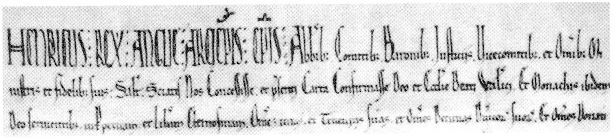 HENRICUS : REX : ANGLIE : ARCHEPIS : EPIS : Abbib; Comitib; Baronib; Justiciis, Vicecomitib; et Omib; 
nistris et fidelib; suis Salt; Sciatis Nos Concessisse, et psenti Carta Confirmasse Deo et Ecclie Beate et Monachis ibidem
Deo servientib; in et liberam Elemosinam, Omes et Tenuras suas, et omes Decimas suor. Et Omes